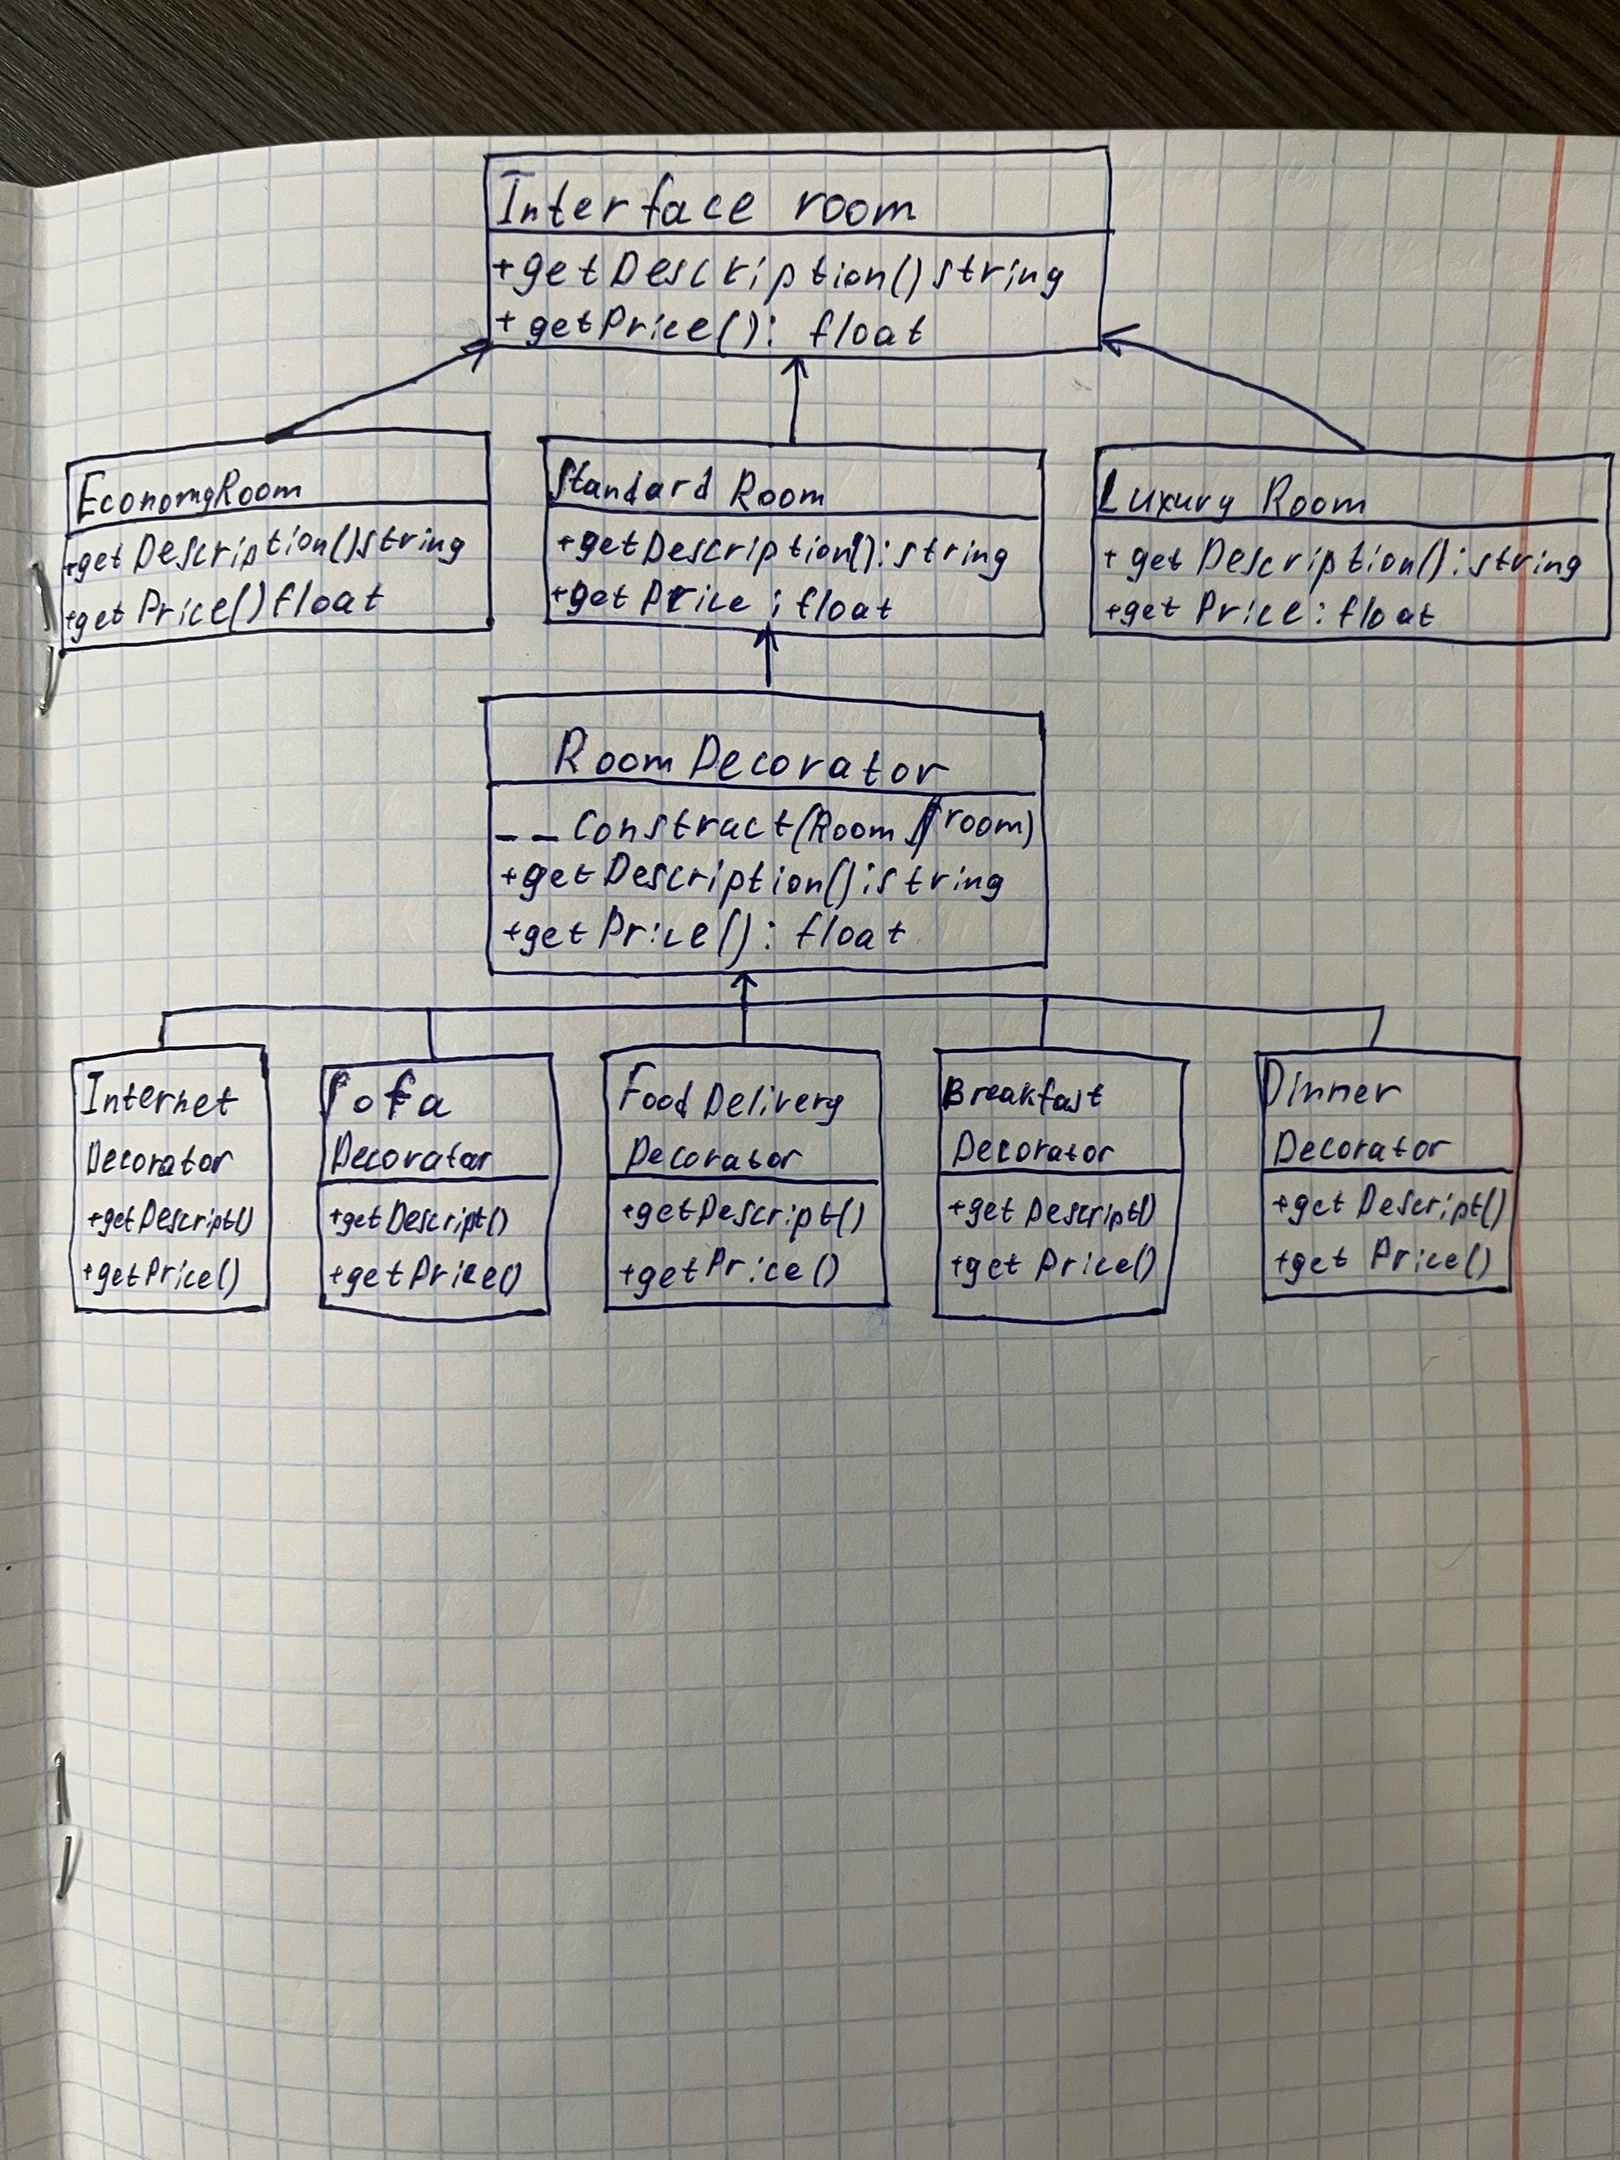 Interface room
+getDescription() string
+getPrice(): float
EconomyRoom
+getDescription() string
+getPrice() float
Standard Room
+getDescription(): string
+getPrice : float
Luxury Room
+ getDescription(): string
+get Price : float
RoomDecorator
__Constract(Room room)
+getDescription(): string
+getPrice(): float
Internet
Decorator
+getDescript()
+getPrice()
Sofa
Decorator
+getDescript()
+getPrice()
Food Delivery
Decorator
+getDescript()
+getPrice()
Breakfast
Decorator
+get Descript()
+get Price()
Dinner
Decorator
+get Descript()
+get Price()